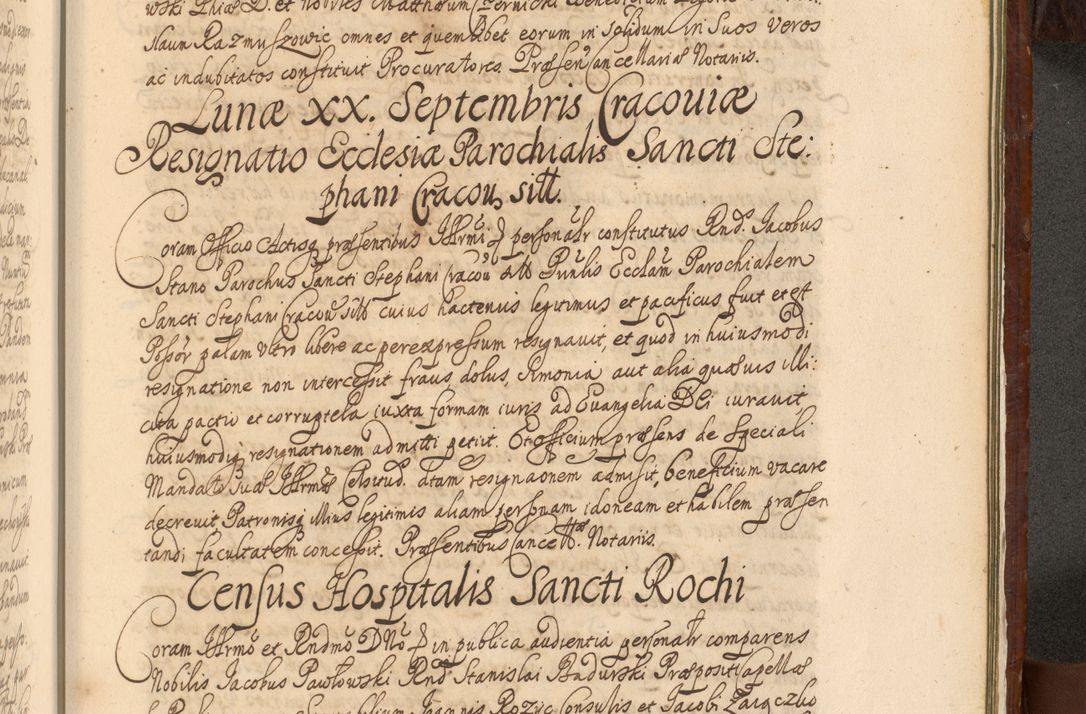 wski Phiae D. et Nobiles Matthaeum Czernicki
Naun Razmuszowic omnes et quemlibet eorum in Solidum in Suos veros
ac indubitatos constituit Procuratores. Praesen Cancellariae Notariis.
Lunae XX. Septembris Cracoviae
Resignatio Ecclesiae Parochialis Sancti Ste:
phani Cracou, sitt.
Coram Officio Actisq praesentibus Illrmi personalr constitutus Rnds. Iacobus
Stano Parochus Sancti Stephani Cracou Ecclam Parochialem
Sancti Stephani Cracou sitt cuius hactenus legitimus et pacificus fuit et est
Possor palam vltro libere ac per expressum resignauit, et quod in huiusmodi
resignatione non intercessit fraus, dolus, Simonia aut alia quaeuis illi:
cita pactio et corruptela iuxta formam iuris ad Euangelia Dei iurauit,
huiusmodiq resignationem admitti petiit. Et officium praesens de speciali
Mandato Suae Illrmae Celsitud. dtam resignaonem admisit, beneficium vacare
decreuit, Patronisq illius legitimis aliam personam idoneam et habilem praesen
tandi facultatem concessit. Praesentibus Cancell. Notariis.
Census Hospitalis Sancti Rochi
Coram Illrmo et Rndmo DNo in publica audientia personalr comparens
Nobilis Iacobus Pawlowski Rnd Stanislai Badurski Praepositi Capellae
Ioannis Rozyc Consulis et Iacobi Zaiączko